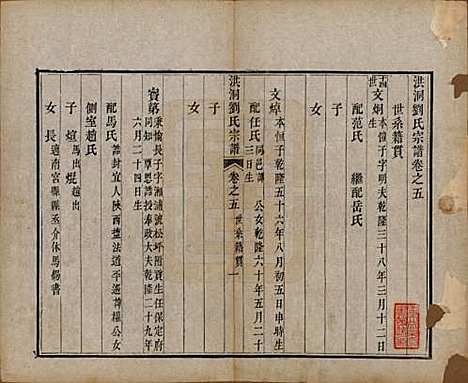 洪洞劉氏宗譜卷之五
世系籍貫
十五世
文炯 本恒子字明夫乾隆三十八年三月十二日
生
配范氏 繼配岳氏
子
女
文焯 本恒子乾隆五十六年八月初五日申時生
配任氏 同邑諱 公女乾隆六十年五月二十
三日生
子
女
洪洞劉氏宗譜 卷之五 世系籍貫 一
寶第 秉愉長子字湘浦號松坪附貢生任保定府
同知 覃恩誥授奉政大夫乾隆二十九年
六月二十四日生
配馬氏 誥封宜人陝西按察司平遙諱權公女
側室趙氏
子 煊 馬出 焜 趙出
女 長適南宮縣縣丞介休馬錫書